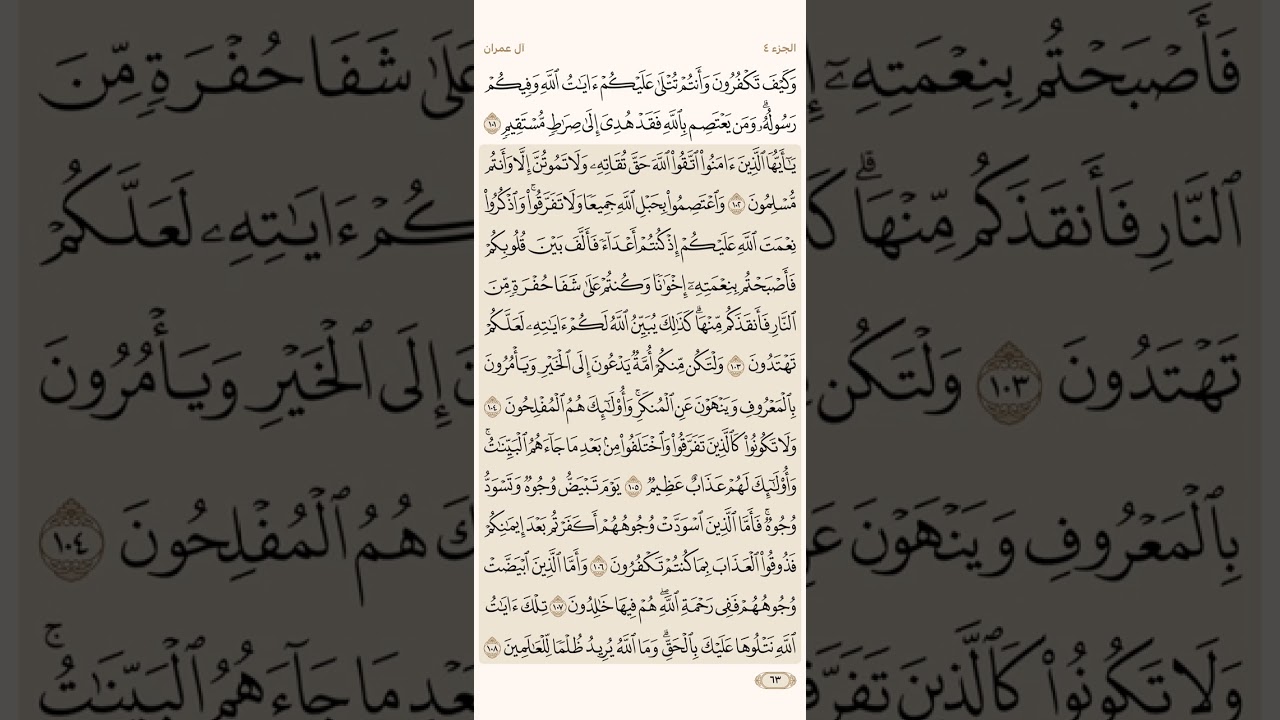 الجزء ٤
آل عمران
وَكَيْفَ تَكْفُرُونَ وَأَنتُمْ تُتْلَىٰ عَلَيْكُمْ ءَايَٰتُ ٱللَّهِ وَفِيكُمْ
رَسُولُهُۥۗ وَمَن يَعْتَصِم بِٱللَّهِ فَقَدْ هُدِىَ إِلَىٰ صِرَٰطٍ مُّسْتَقِيمٍ ١٠١
يَٰٓأَيُّهَا ٱلَّذِينَ ءَامَنُوا۟ ٱتَّقُوا۟ ٱللَّهَ حَقَّ تُقَاتِهِۦ وَلَا تَمُوتُنَّ إِلَّا وَأَنتُم
مُّسْلِمُونَ ١٠٢ وَٱعْتَصِمُوا۟ بِحَبْلِ ٱللَّهِ جَمِيعًا وَلَا تَفَرَّقُوا۟ۚ وَٱذْكُرُوا۟
نِعْمَتَ ٱللَّهِ عَلَيْكُمْ إِذْ كُنتُمْ أَعْدَآءً فَأَلَّفَ بَيْنَ قُلُوبِكُمْ
فَأَصْبَحْتُم بِنِعْمَتِهِۦٓ إِخْوَٰنًا وَكُنتُمْ عَلَىٰ شَفَا حُفْرَةٍ مِّنَ
ٱلنَّارِ فَأَنقَذَكُم مِّنْهَاۗ كَذَٰلِكَ يُبَيِّنُ ٱللَّهُ لَكُمْ ءَايَٰتِهِۦ لَعَلَّكُمْ
تَهْتَدُونَ ١٠٣ وَلْتَكُن مِّنكُمْ أُمَّةٌ يَدْعُونَ إِلَى ٱلْخَيْرِ وَيَأْمُرُونَ
بِٱلْمَعْرُوفِ وَيَنْهَوْنَ عَنِ ٱلْمُنكَرِۚ وَأُو۟لَٰٓئِكَ هُمُ ٱلْمُفْلِحُونَ ١٠٤
وَلَا تَكُونُوا۟ كَٱلَّذِينَ تَفَرَّقُوا۟ وَٱخْتَلَفُوا۟ مِنۢ بَعْدِ مَا جَآءَهُمُ ٱلْبَيِّنَٰتُۚ
وَأُو۟لَٰٓئِكَ لَهُمْ عَذَابٌ عَظِيمٌ ١٠٥ يَوْمَ تَبْيَضُّ وُجُوهٌ وَتَسْوَدُّ
وُجُوهٌۚ فَأَمَّا ٱلَّذِينَ ٱسْوَدَّتْ وُجُوهُهُمْ أَكَفَرْتُم بَعْدَ إِيمَٰنِكُمْ
فَذُوقُوا۟ ٱلْعَذَابَ بِمَا كُنتُمْ تَكْفُرُونَ ١٠٦ وَأَمَّا ٱلَّذِينَ ٱبْيَضَّتْ
وُجُوهُهُمْ فَفِى رَحْمَةِ ٱللَّهِۖ هُمْ فِيهَا خَٰلِدُونَ ١٠٧ تِلْكَ ءَايَٰتُ
ٱللَّهِ نَتْلُوهَا عَلَيْكَ بِٱلْحَقِّۗ وَمَا ٱللَّهُ يُرِيدُ ظُلْمًا لِّلْعَٰلَمِينَ ١٠٨
٦٣